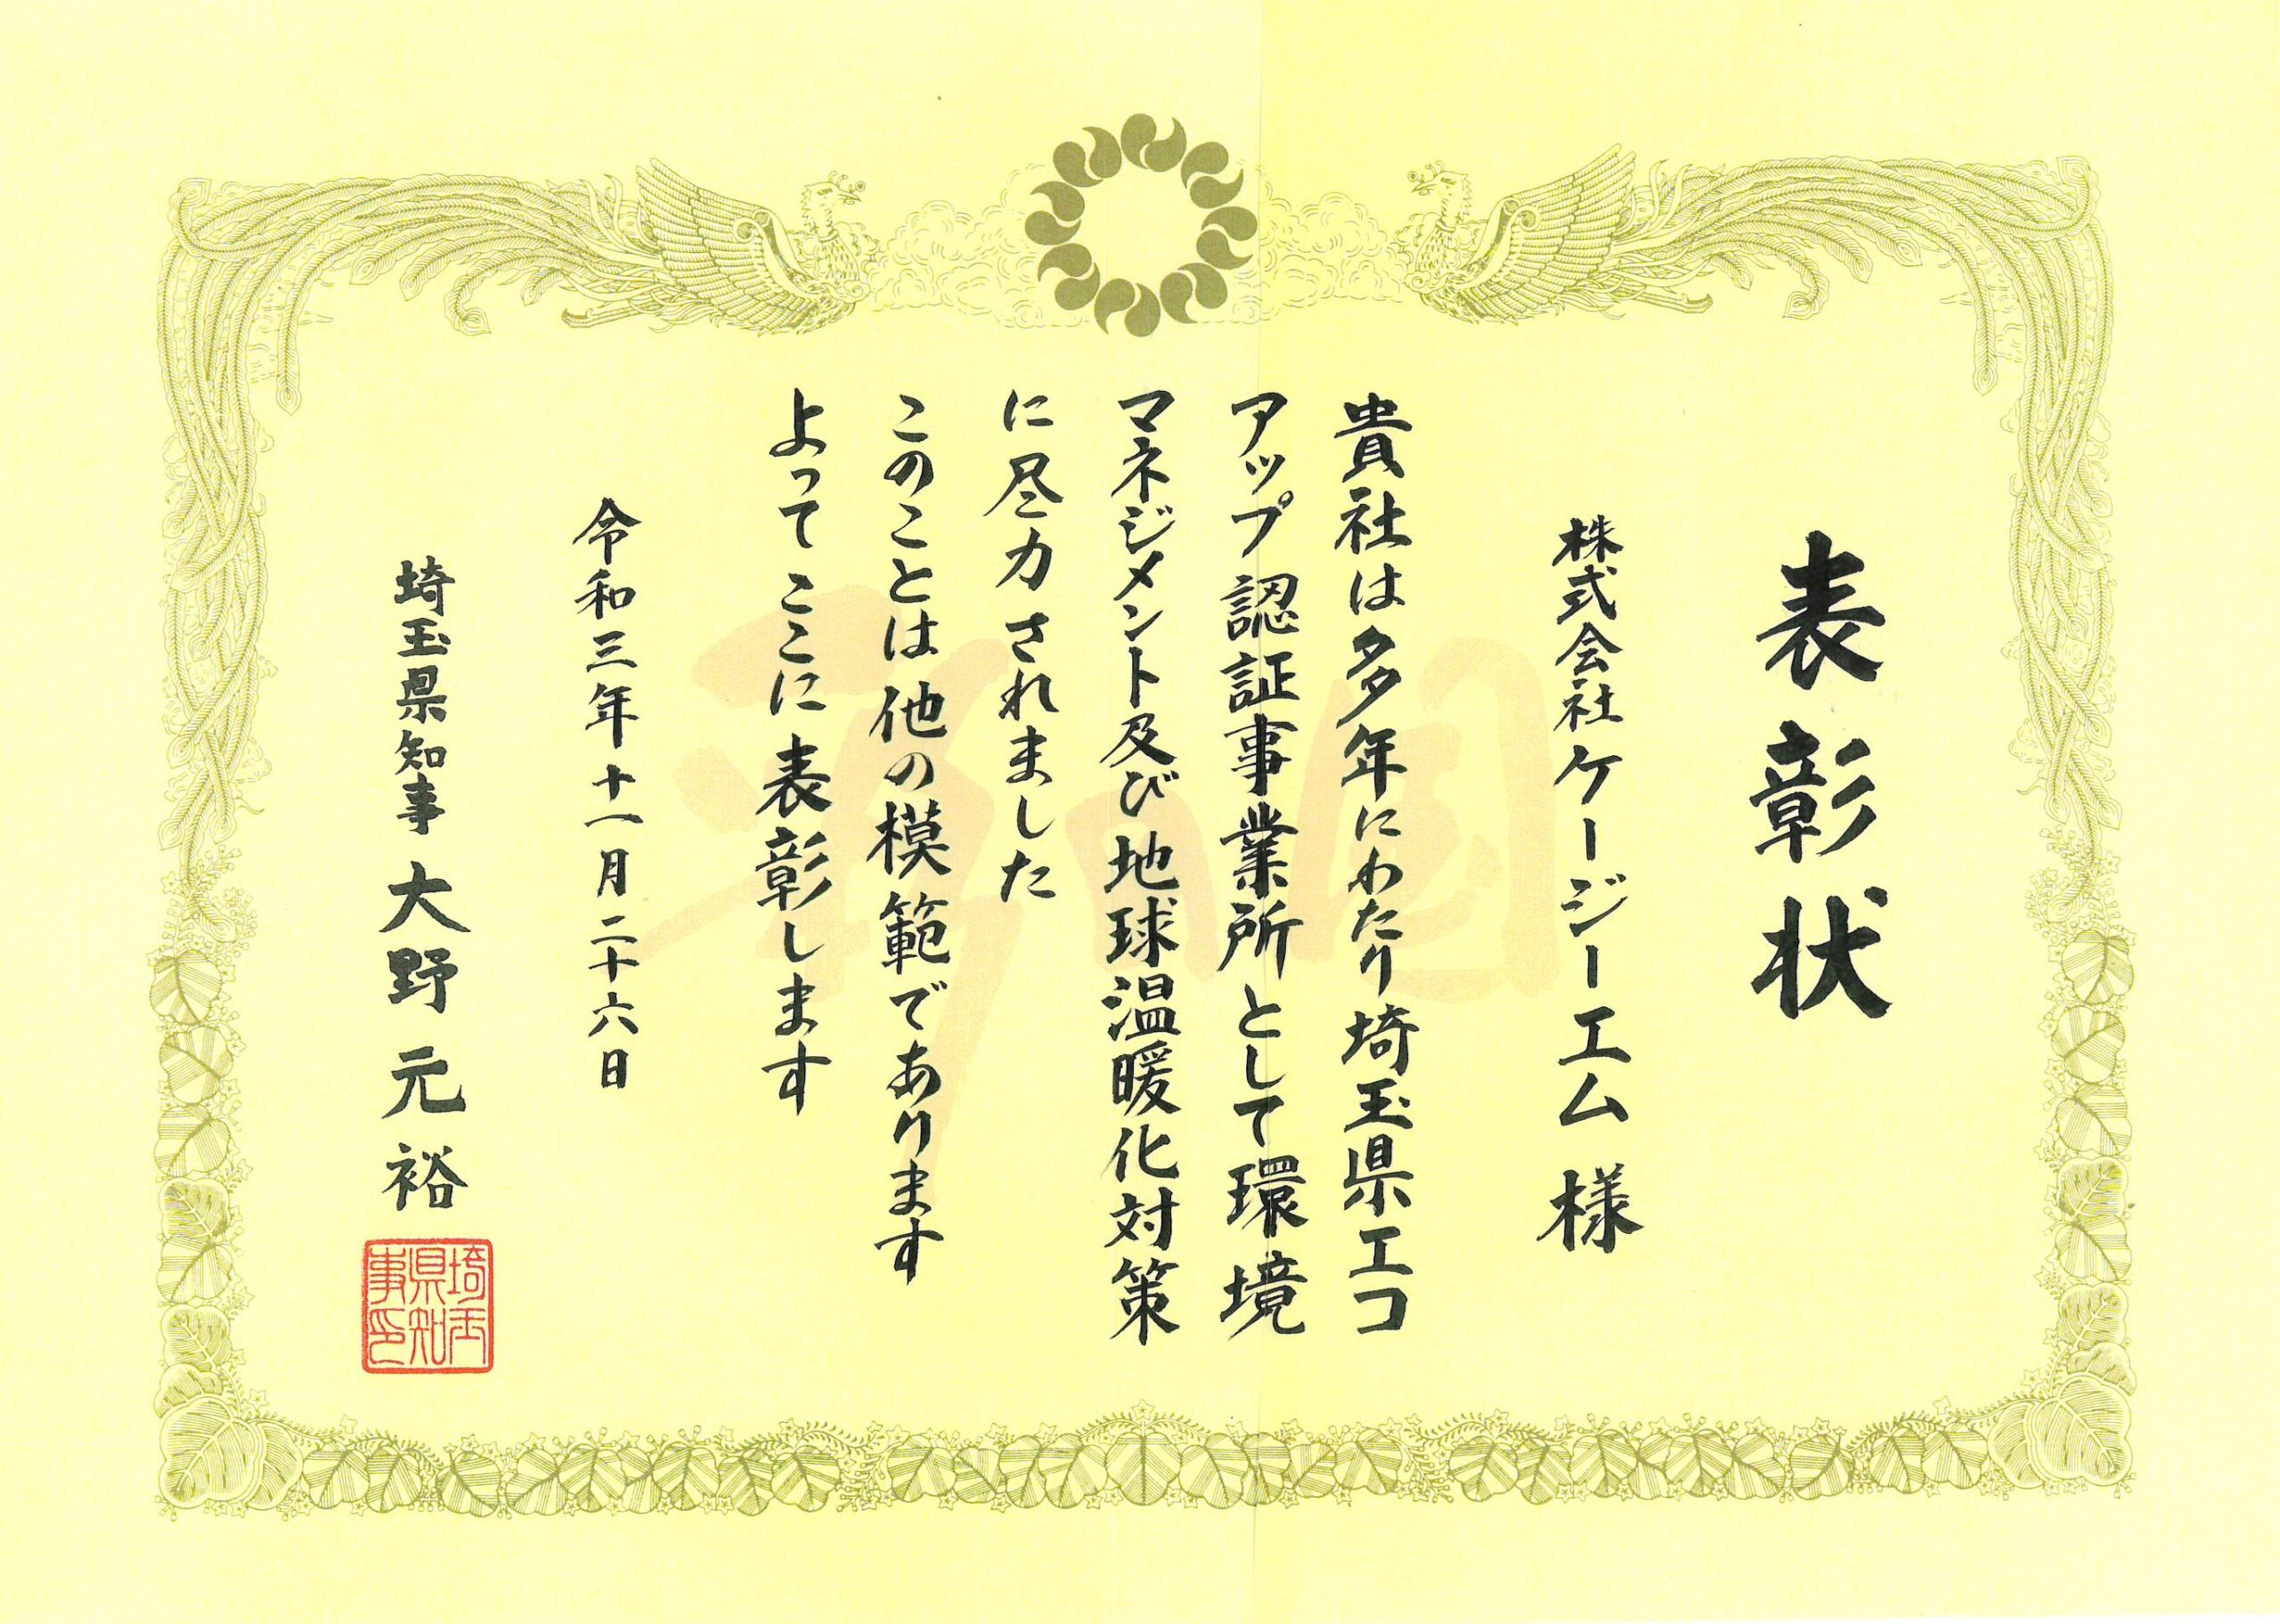 表彰状
株式会社ケージーエム 様
貴社は多年にわたり埼玉県エコ
アップ認証事業所として環境
マネジメント及び地球温暖化対策
に尽力されました
このことは他の模範であります
よってここに表彰します
令和三年十一月二十六日
埼玉県知事 大野元裕
埼玉
県知
事印